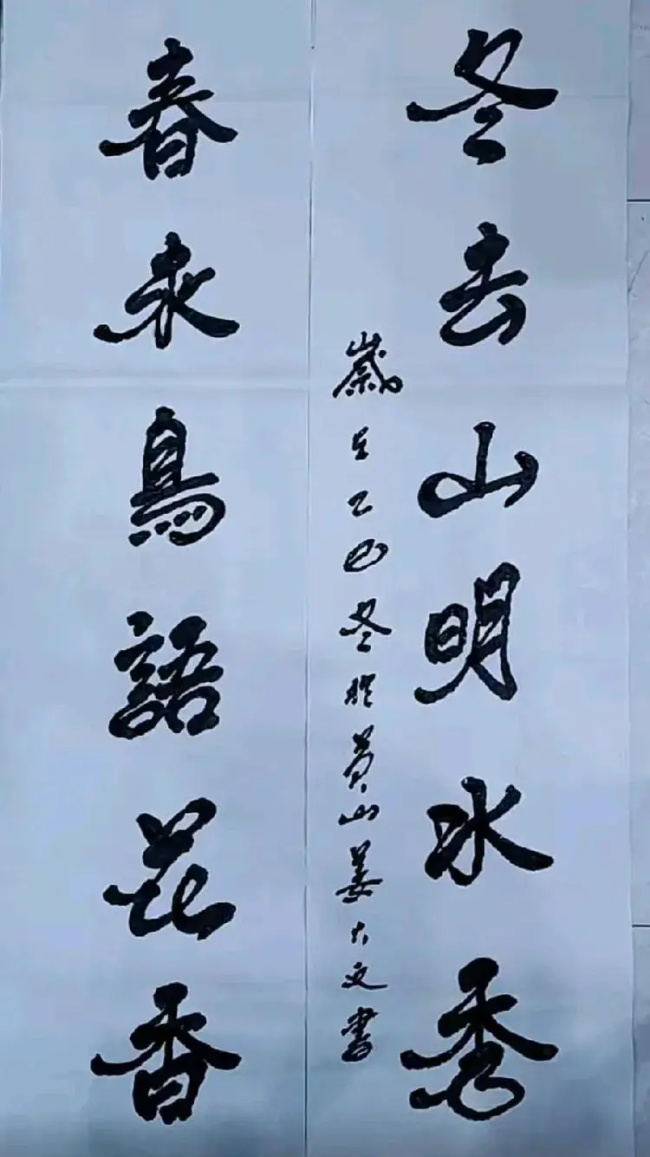 冬去山明水秀
歲在乙巳冬於黃山姜大文書
春來鳥語花香